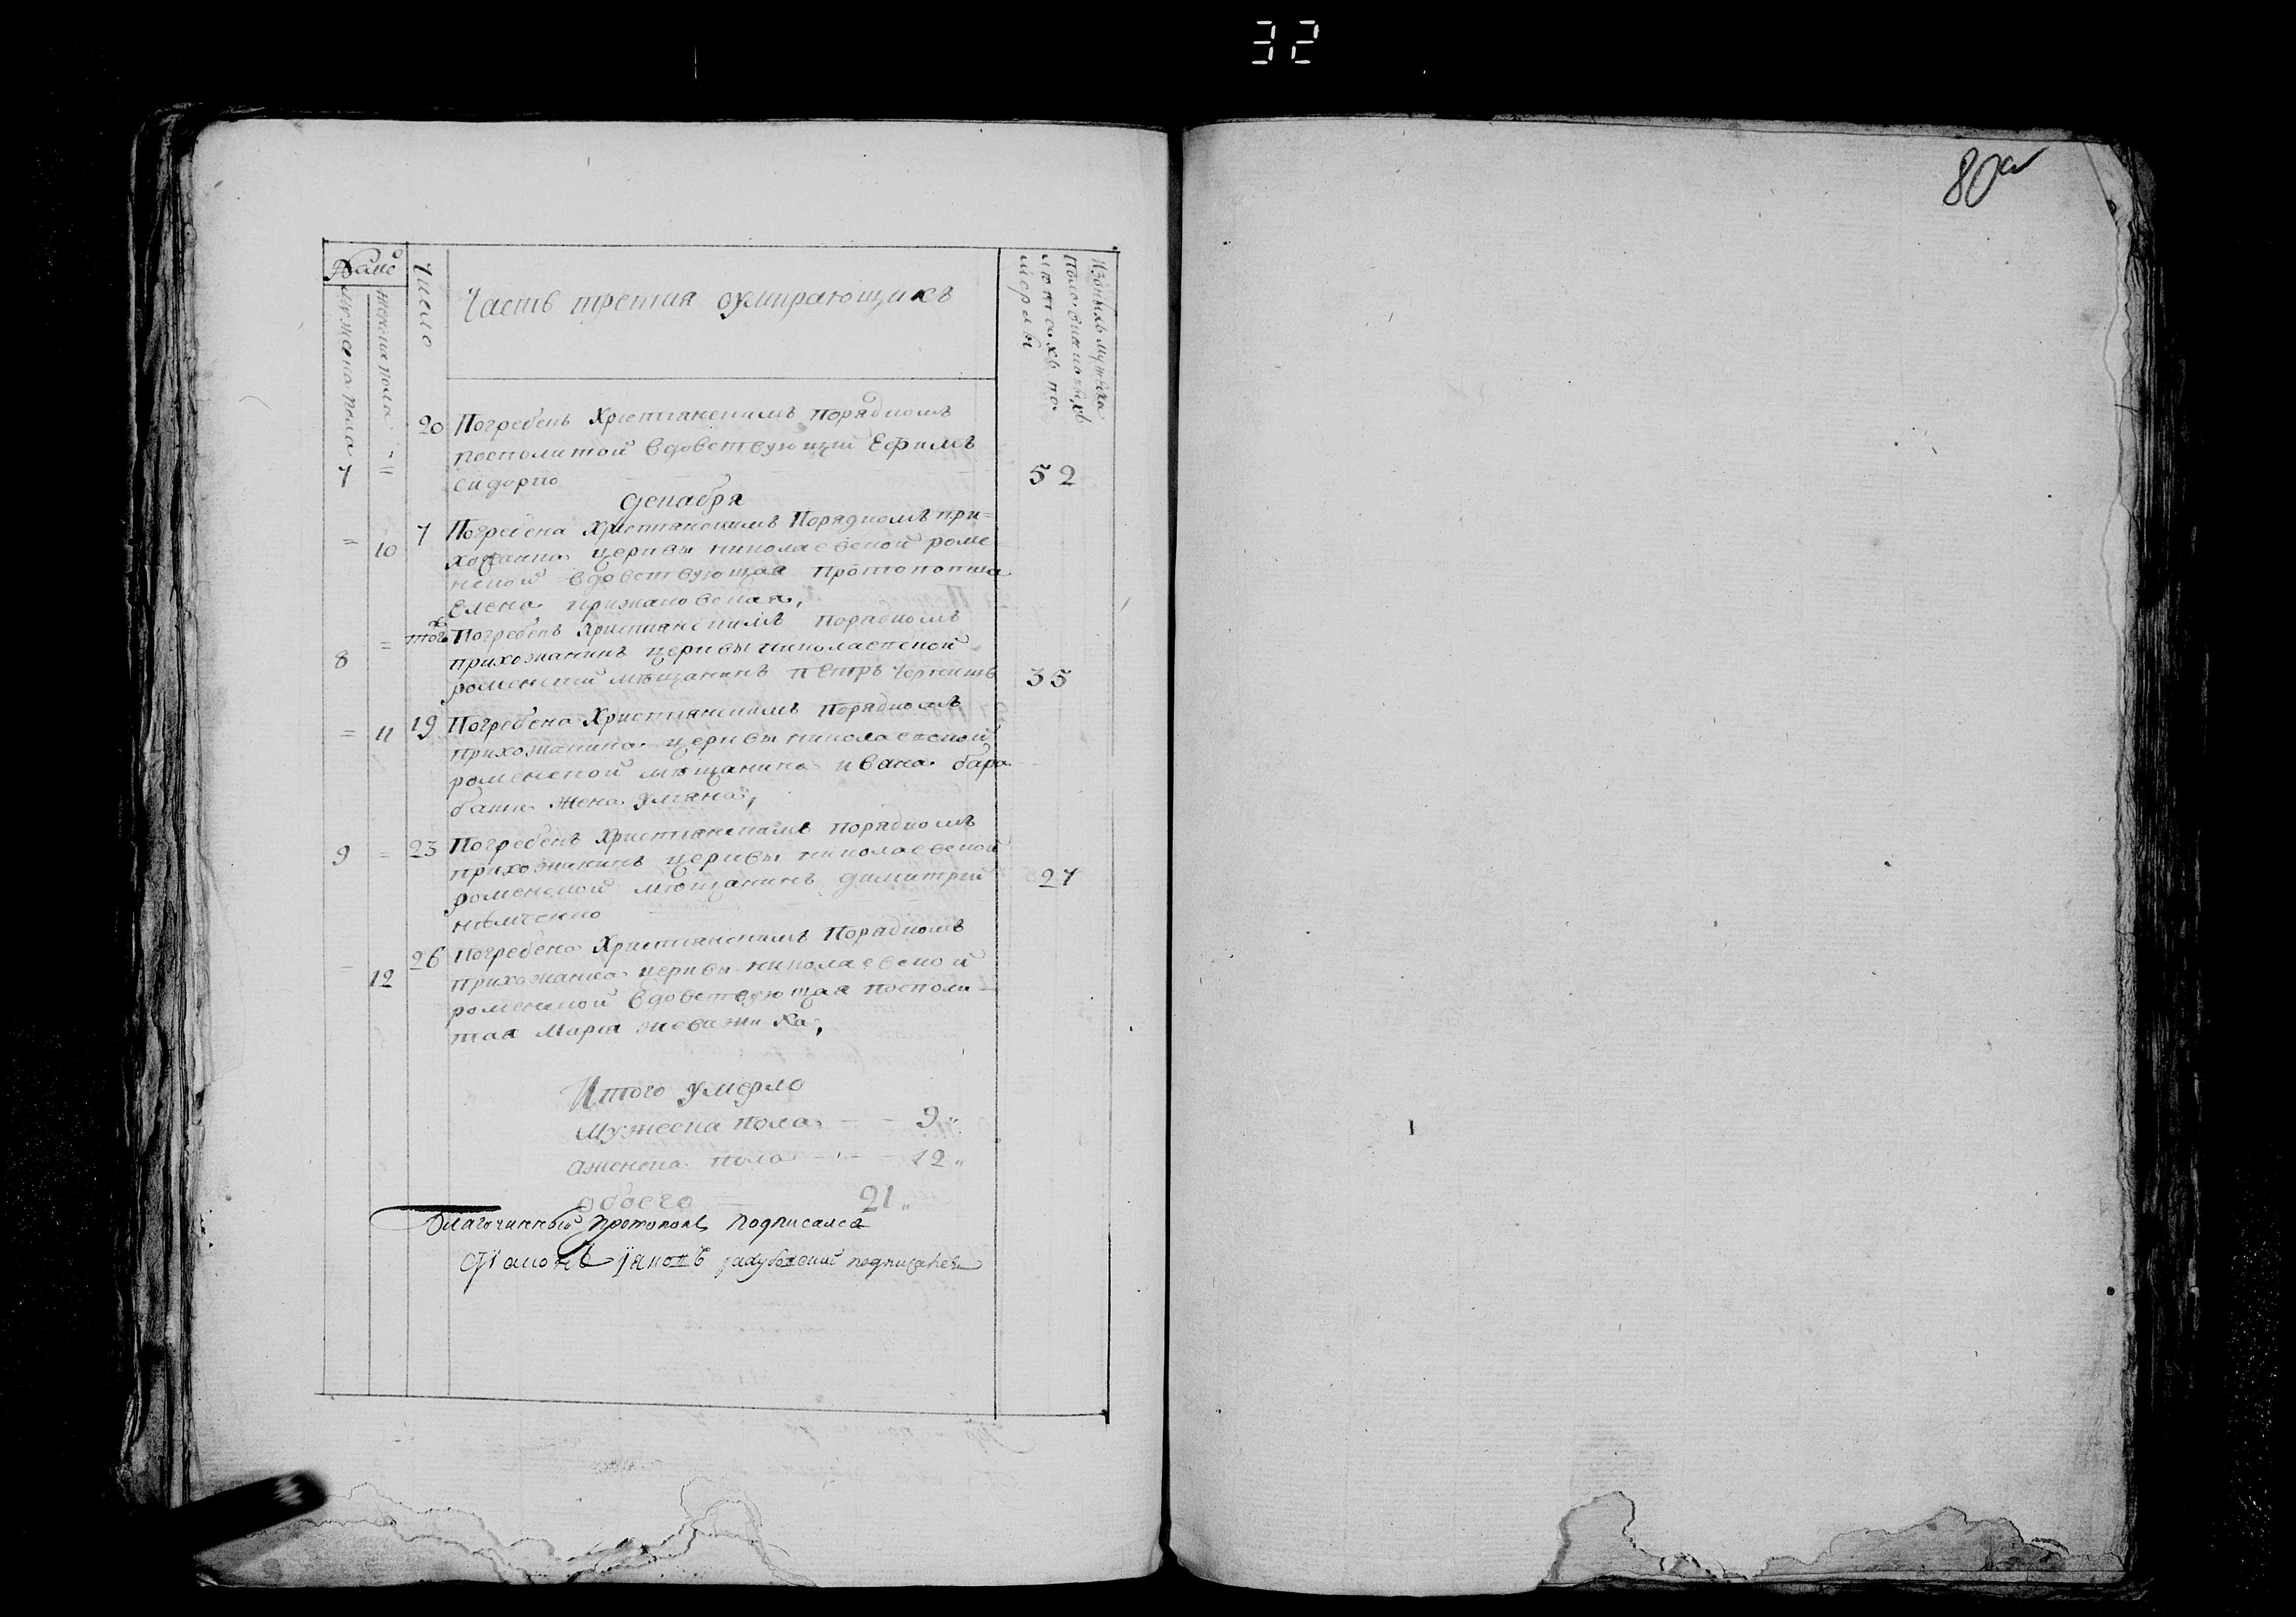 32
80
число
мужеска пола
женска пола
Часть третия оумирающихъ
изоныхъ мужеска
пола
лѣтахъ по
мерлы
20 Погребенъ Христианскимъ порядкомъ
посполитой вдовствующий Ефимъ
7 = сидорко 52
декабря
7 Погребена Христианскимъ Порядкомъ при=
= 10 хожанка церквы николаевской роме
нской вдовствующая протопопша
Елена
тогож Погребенъ Христианскимъ порядкомъ
8 = прихожанинъ церквы николаевской
роменский мѣщанинъ пЕтръ 35
19 Погребена Христианскимъ порядкомъ
= 11 прихожанка церквы николаевской
роменской мѣщанина ивана бара
баша жена улияна,
9 = 23 Погребенъ Христианскимъ порядкомъ
прихожанинъ церквы николаевской
роменской мѣщанинъ димитрий 27
нѣмченко
26 Погребена Христианскимъ Порядкомъ
= 12 прихожанка церквы николаевской
роменской вдовствующая посполи
тая Мариа
Итого умерло
мужеска пола — 9
аженска пола — 12
обоего — 21
Благочинный протопопъ подписался
диаконъ подписался